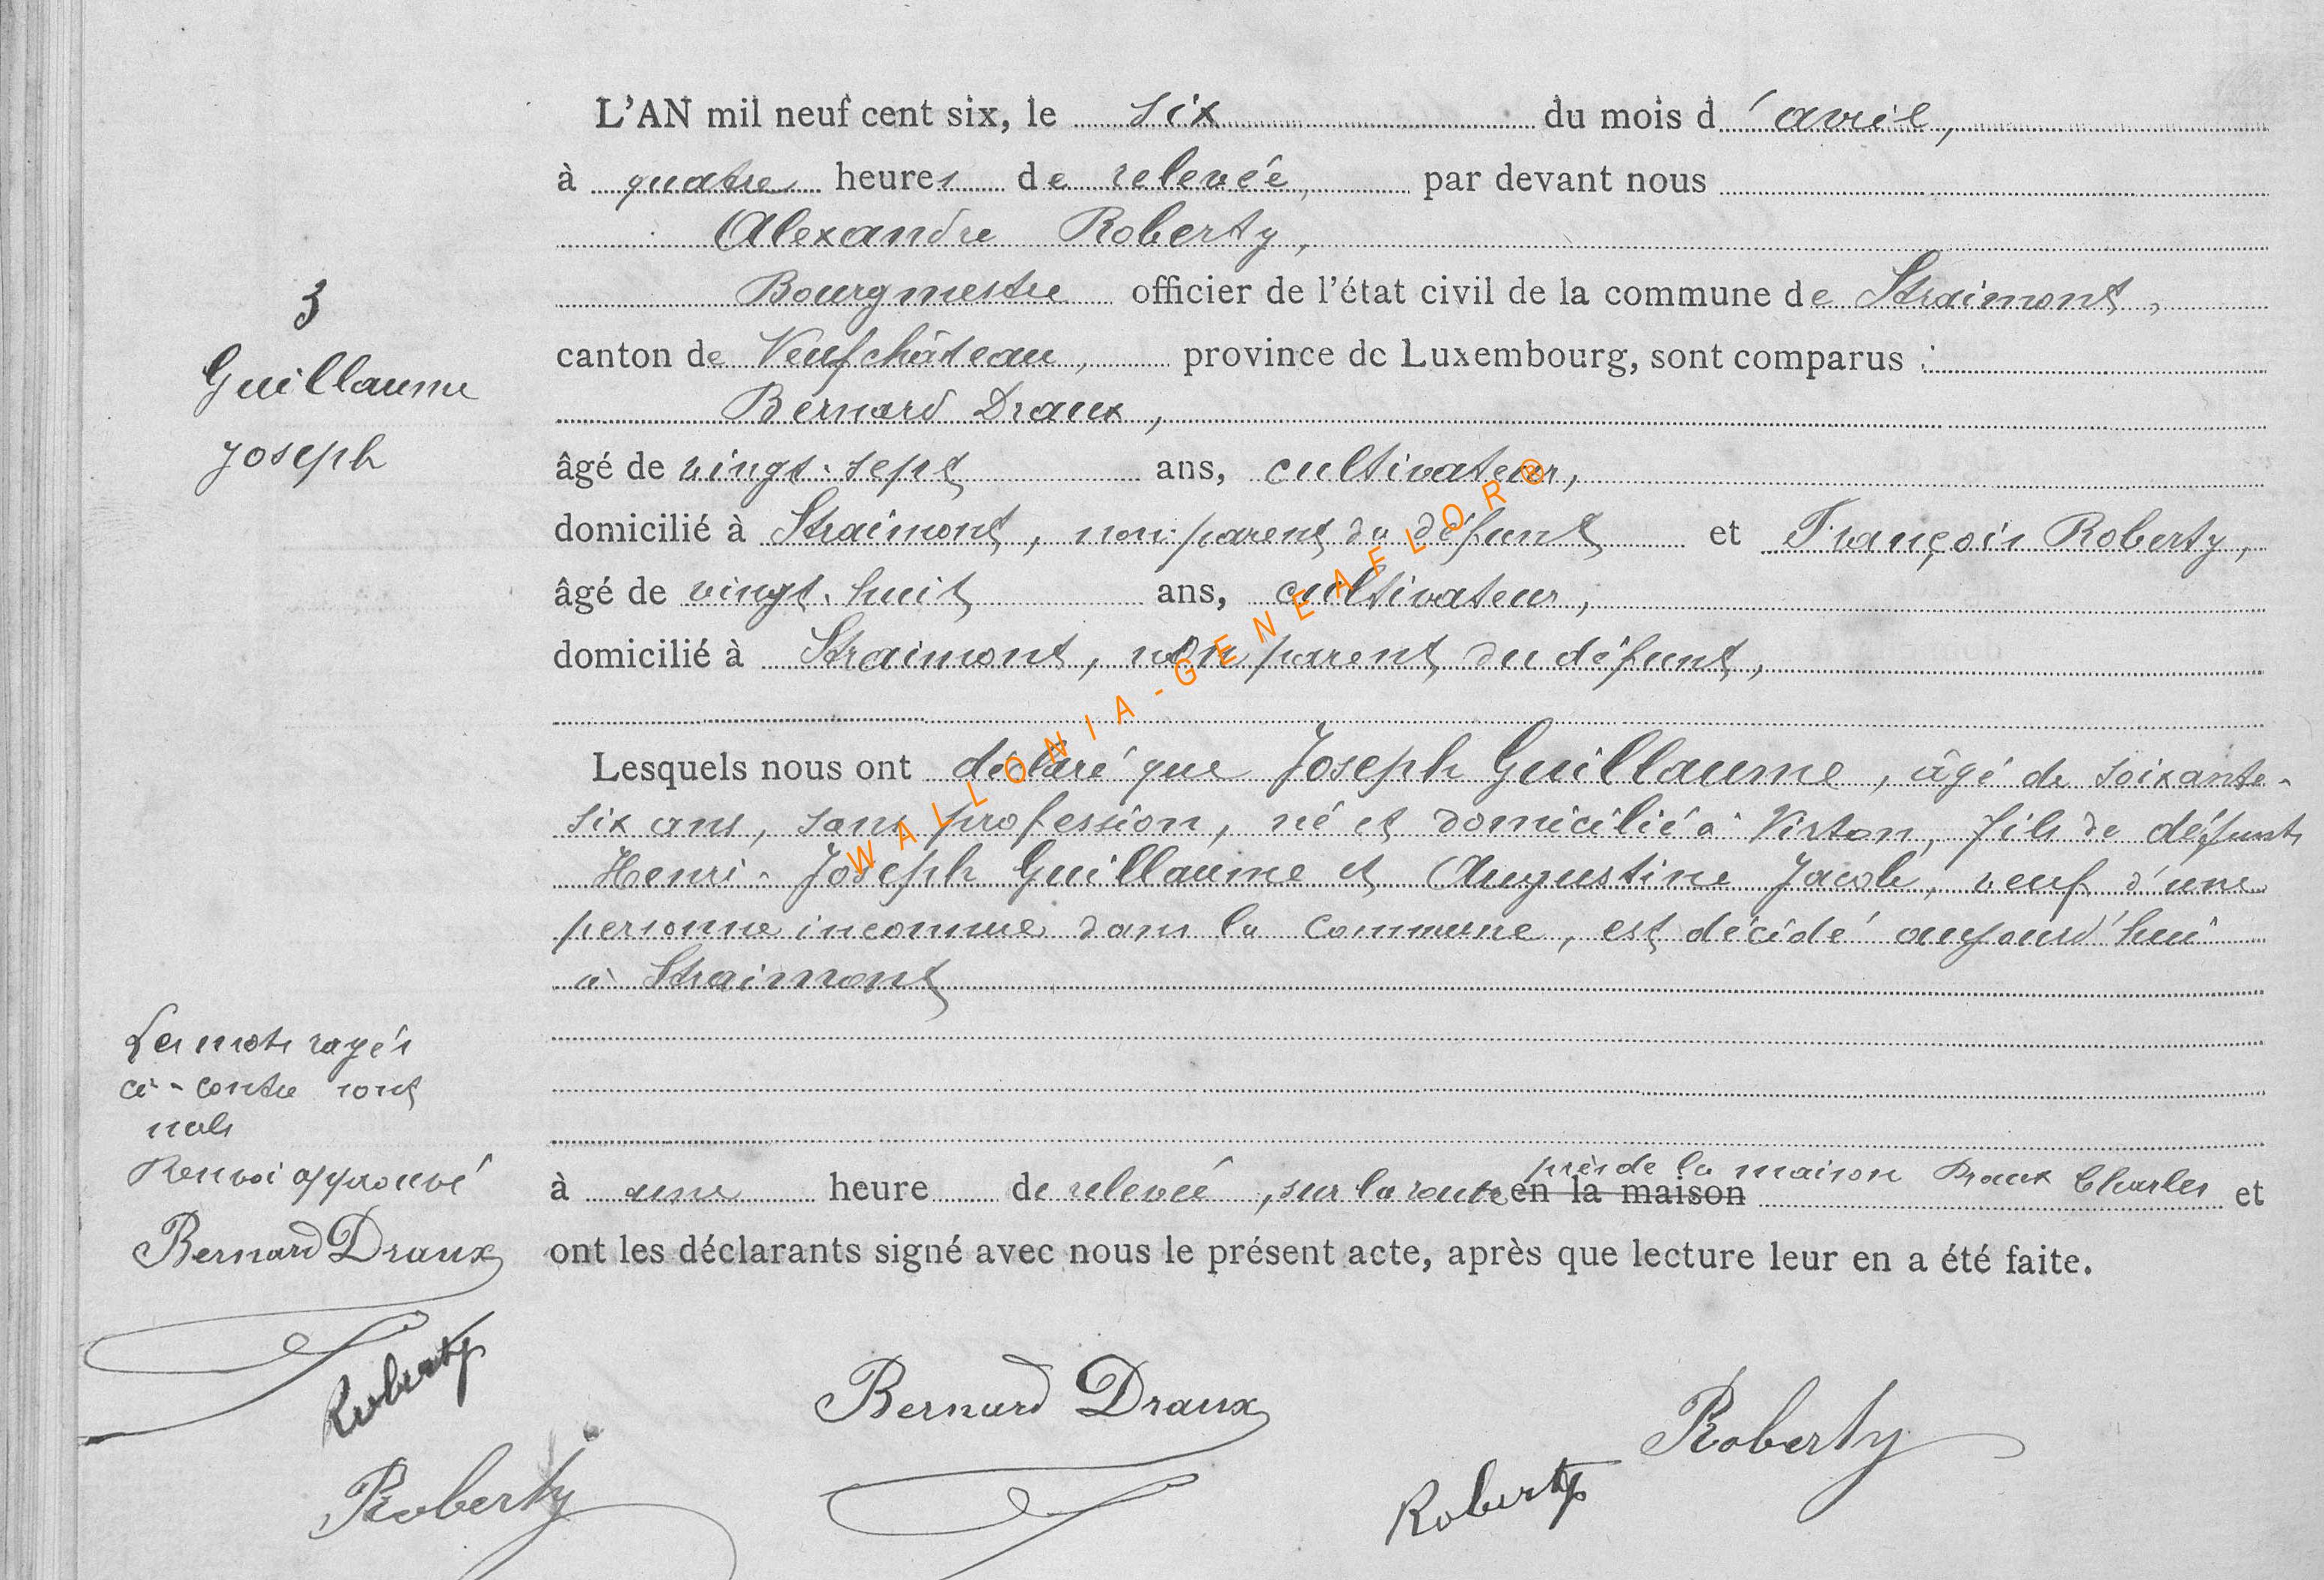 L'AN mil neuf cent six, le six du mois d'avril,
à quatre heures de relevée, par devant nous
Alexandre Roberty,
Bourgmestre officier de l'état civil de la commune de Straimont,
canton de Neufchâteau, province de Luxembourg, sont comparus :
Bernard Draux,
âgé de vingt-sept ans, cultivateur,
domicilié à Straimont, non parent du défunt et François Roberty,
âgé de vingt-huit ans, cultivateur,
domicilié à Straimont, non parent du défunt,
3
Guillaume
Joseph
Lesquels nous ont déclaré que Joseph Guillaume, âgé de soixante-
six ans, sans profession, né et domicilié à Virton, fils de défunts
Henri-Joseph Guillaume et Augustine Jacob, veuf d'une
personne inconnue dans la commune, est décédé aujourd'hui
à Straimont
près de la maison Draux Charles
à une heure de relevée, sur la route en la maison et
ont les déclarants signé avec nous le présent acte, après que lecture leur en a été faite.
Les mots rayés
ci-contre sont
nuls
Renvoi approuvé
Bernard Draux
Roberty
Roberty
Bernard Draux
Roberty
Roberty
WALLONIA-GENEAFLOR®